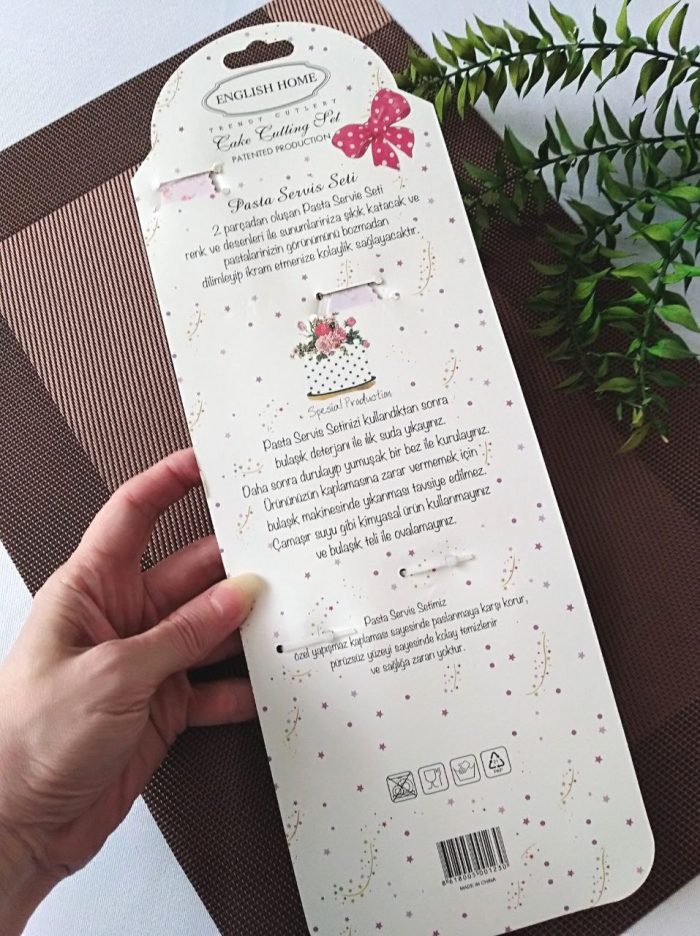 ENGLISH HOME
TRENDY CUTLERY
Cake Cutting Set
PATENTED PRODUCTION
Pasta Servis Seti
2 parçadan oluşan Pasta Servis Seti
renk ve desenleri ile sunumlarınıza şıklık katacak ve
pastalarinizin görünümünü bozmadan
dilimleyip ikram etmenize kolaylik sağlayacaktır.
Spesial Production
Pasta Servis Setinizi kullandıktan sonra
bulaşık deterjanı ile ılık suda yıkayınız.
Daha sonra durulayıp yumuşak bir bez ile kurulayınız.
Ürününüzün kaplamasına zarar vermemek için
bulaşık makinesinde yıkanması tavsiye edilmez.
Çamaşır suyu gibi kimyasal ürün kullanmayınız
ve bulaşık teli ile ovalamayınız.
Pasta Servis Setimiz
özel yapışmaz kaplaması sayesinde paslanmaya karşı korur,
pürüzsüz yüzeyi sayesinde kolay temizlenir
ve sağlığa zararı yoktur.
PAP
8 618005 001230
MADE IN CHINA